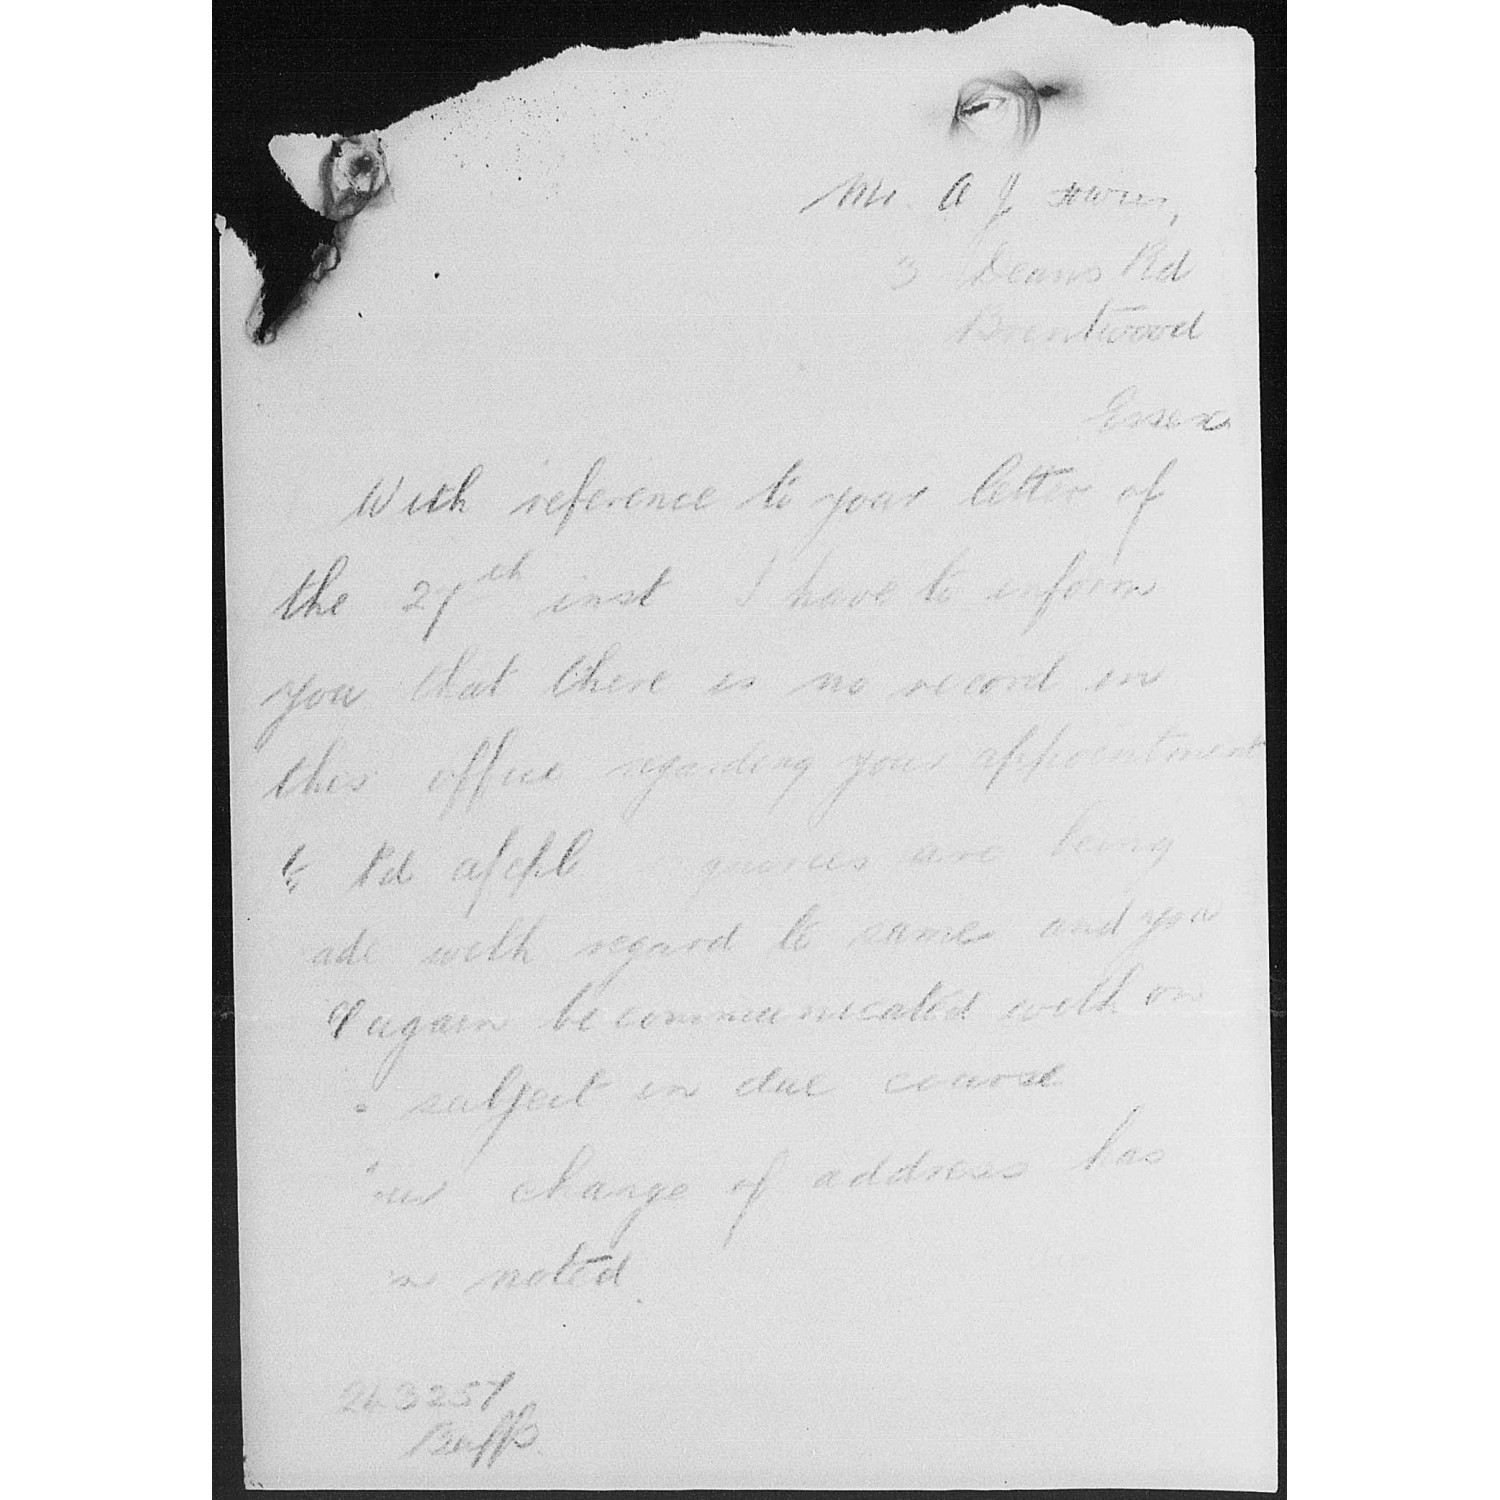 Mr. A J
3 Deans Rd
Brentwood
Essex
With reference to your letter of
the 27th inst I have to inform
you that there is no record in
this office regarding your appointment
to Pd a/cpl quiries are being
ade with regard to same and you
again be communicated with on
subject in due course
change of address has
n noted.
243257
Buffs